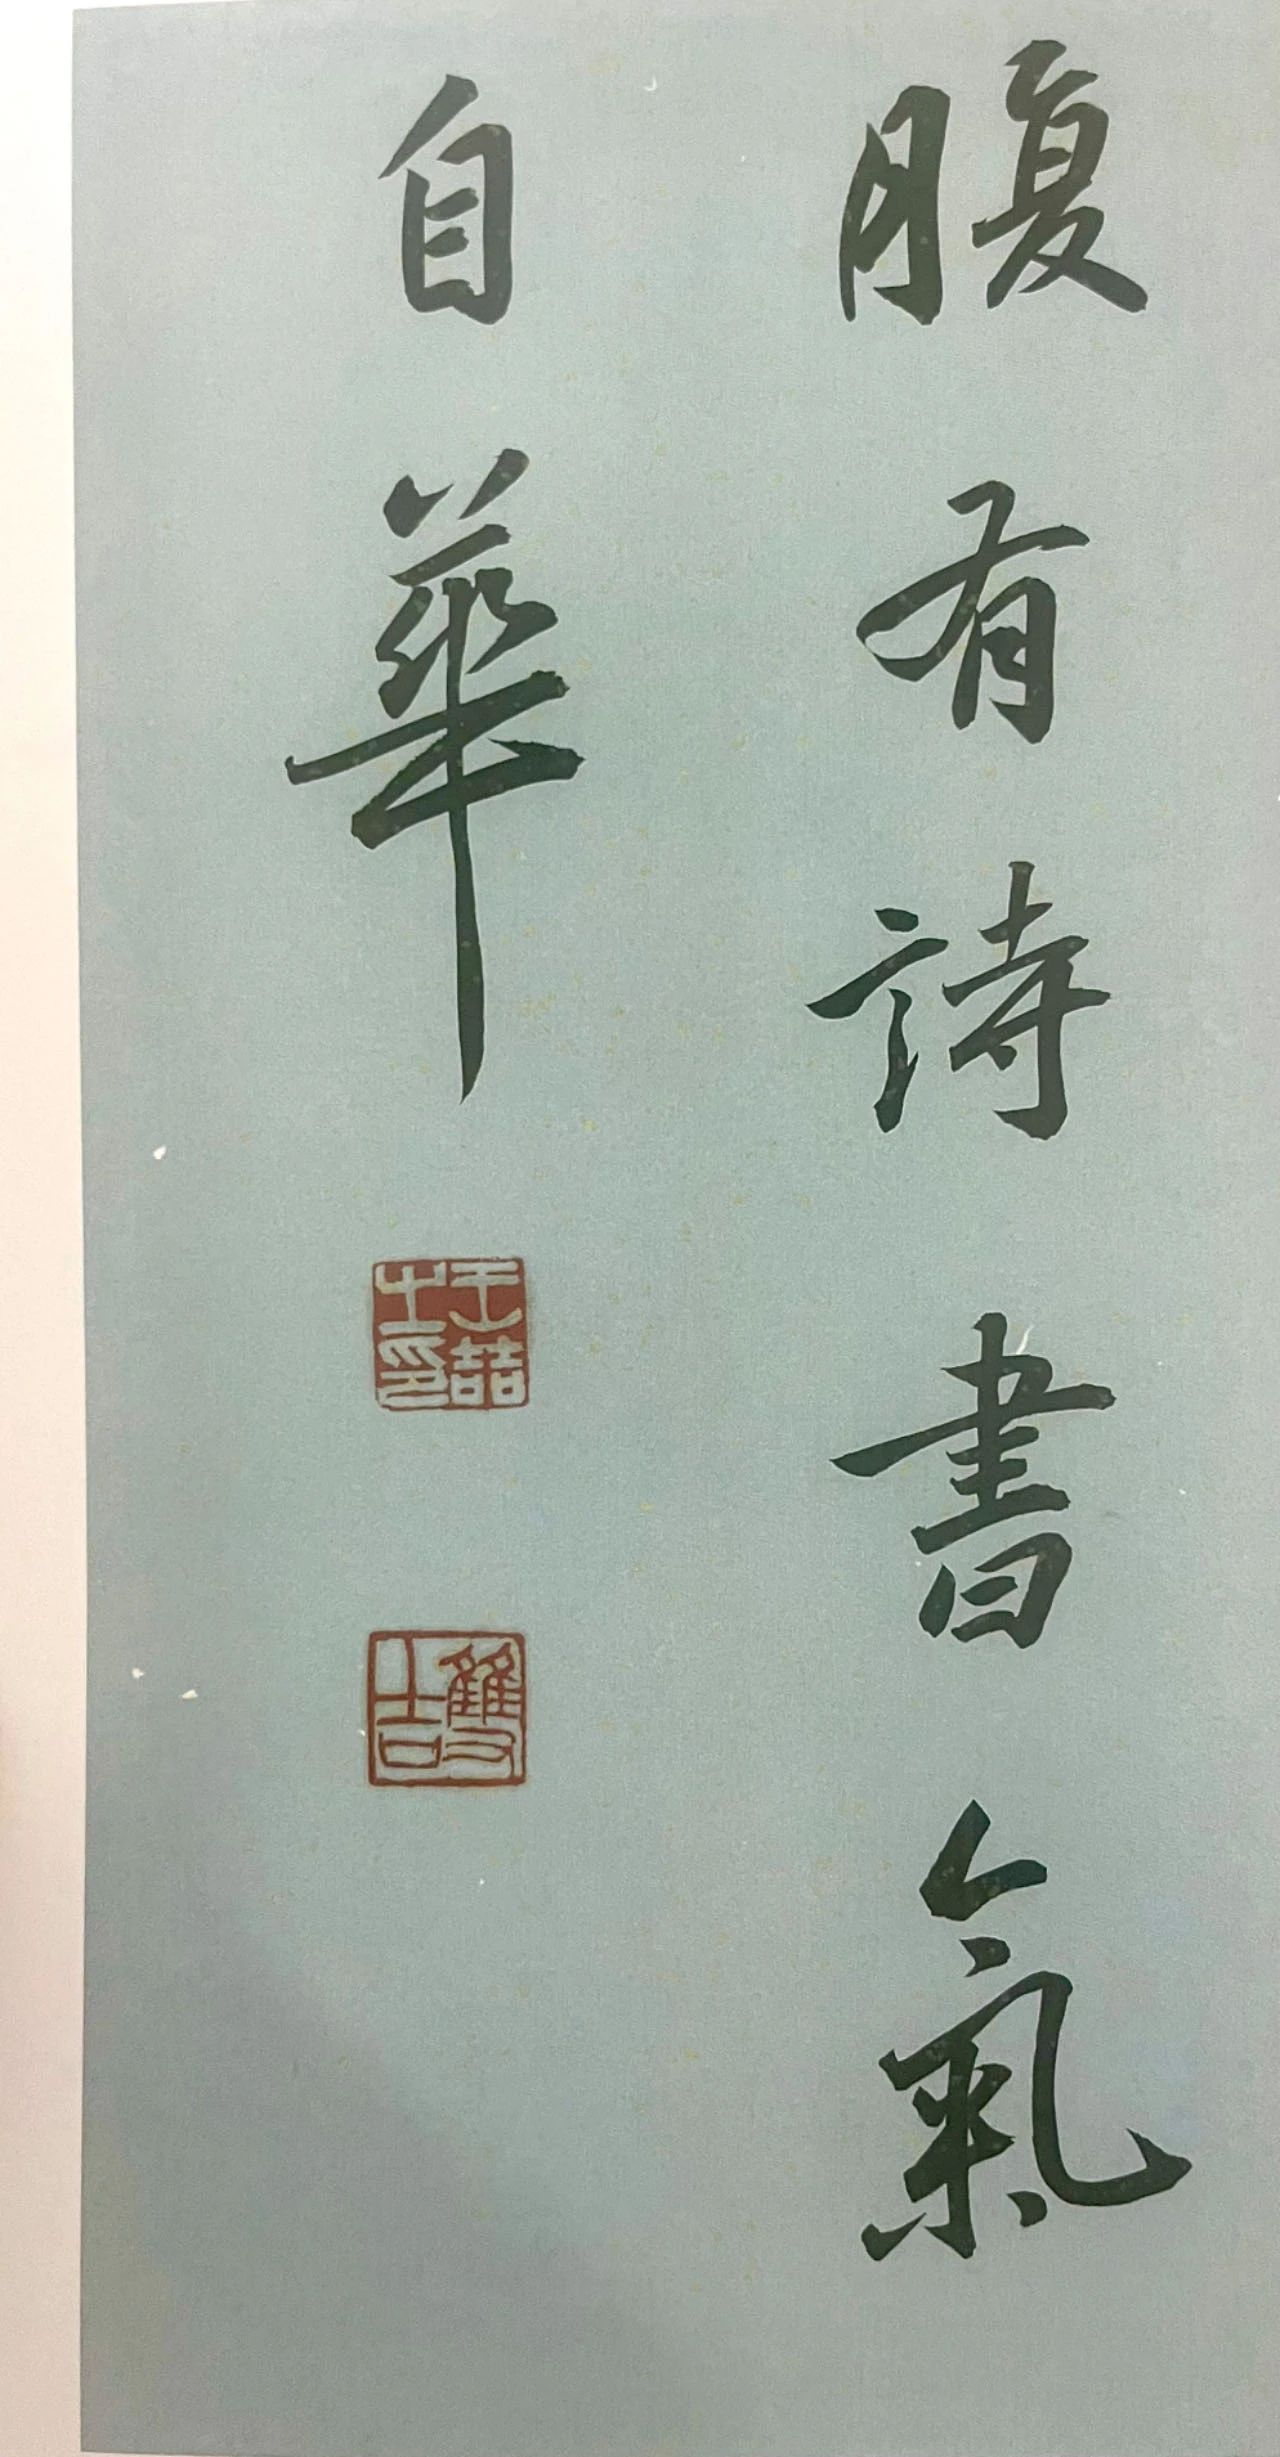 腹有詩書氣
自華
王喆之印
雙吉